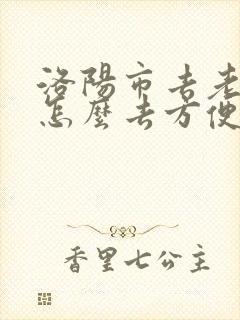 洛陽市去老
怎麼去方便
香里七公主